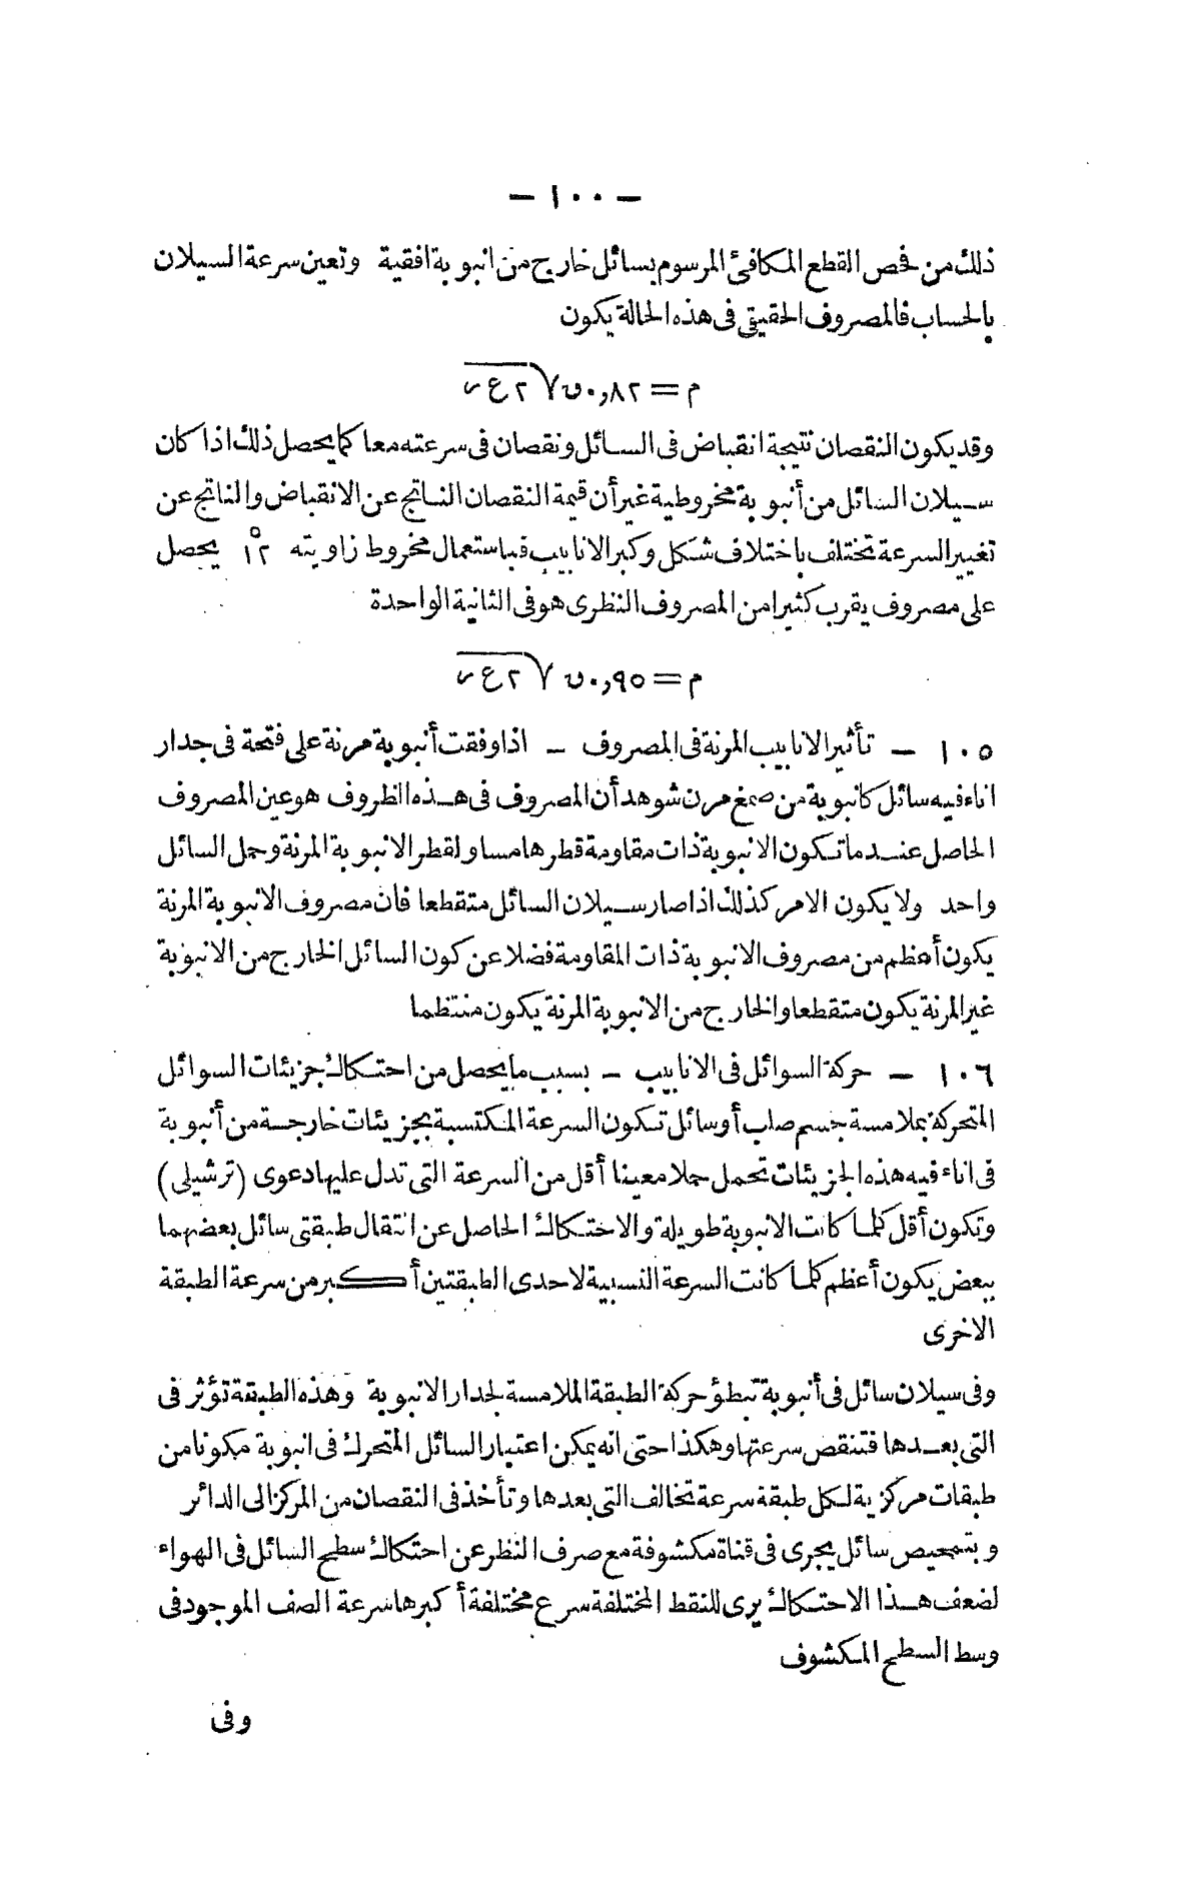 — ١٠٠ —
ذلك من فحص القطع المكافئ المرسوم بسائل خارج من انبوبة افقية وتعين سرعة السيلان
بالحساب فالمصروف الحقيقي فى هذه الحالة يكون
م = ٠,٨٢ ں √٢ ع ر
وقد يكون النقصان نتيجة انقباض فى السائل ونقصان فى سرعته معا كما يحصل ذلك اذا كان
سيلان السائل من أنبوبة مخروطية غير أن قيمة النقصان الناتج عن الانقباض والناتج عن
تغيير السرعة تختلف باختلاف شكل وكبر الانابيب فباستعمال مخروط زاويته ١٢° يحصل
على مصروف يقرب كثيرا من المصروف النظرى هو فى الثانية الواحدة
م = ٠,٩٥ ں √٢ ع ر
١٠٥ — تأثير الانابيب المرنة فى المصروف — اذا وفقت أنبوبة مرنة على فتحة فى جدار
اناء فيه سائل كانبوبة من صمغ مرن شوهد أن المصروف فى هذه الظروف هو عين المصروف
الحاصل عندما تكون الانبوبة ذات مقاومة قطرها مساو لقطر الانبوبة المرنة وحمل السائل
واحد ولا يكون الامر كذلك اذا صار سيلان السائل متقطعا فان مصروف الانبوبة المرنة
يكون أعظم من مصروف الانبوبة ذات المقاومة فضلا عن كون السائل الخارج من الانبوبة
غير المرنة يكون متقطعا والخارج من الانبوبة المرنة يكون منتظما
١٠٦ — حركة السوائل فى الانابيب — بسبب ما يحصل من احتكاك جزيئات السوائل
المتحركة بملامسة جسم صلب أو سائل تكون السرعة المكتسبة بجزيئات خارجة من أنبوبة
فى اناء فيه هذه الجزيئات تحمل حملا معينا أقل من السرعة التى تدل عليها دعوى (ترشيلى)
وتكون أقل كلما كانت الانبوبة طويلة والاحتكاك الحاصل عن انتقال طبقتى سائل بعضهما
ببعض يكون أعظم كلما كانت السرعة النسبية لاحدى الطبقتين أكبر من سرعة الطبقة
الاخرى
وفى سيلان سائل فى أنبوبة تبطؤ حركة الطبقة الملامسة لجدار الانبوبة وهذه الطبقة تؤثر فى
التى بعدها فتنقص سرعتها وهكذا حتى انه يمكن اعتبار السائل المتحرك فى انبوبة مكونا من
طبقات مركزية لكل طبقة سرعة تخالف التى بعدها وتأخذ فى النقصان من المركز الى الدائر
وبتمحيص سائل يجرى فى قناة مكشوفة مع صرف النظر عن احتكاك سطح السائل فى الهواء
لضعف هذا الاحتكاك يرى للنقط المختلفة سرع مختلفة أكبرها سرعة الصف الموجود فى
وسط السطح المكشوف
وفى